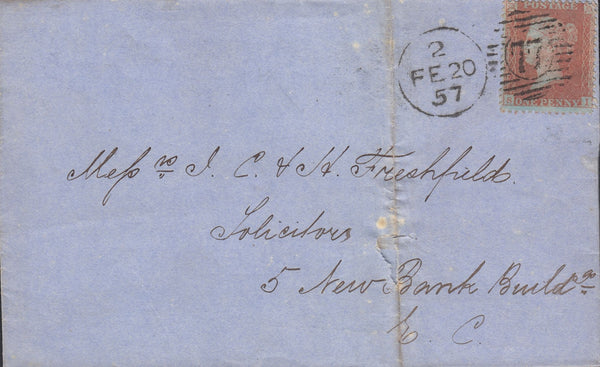 POSTAGE
2
FE 20
57
ONE PENNY
Messrs J. C. & H. Freshfield.
Solicitors
5 New Bank Buildgs
E. C.